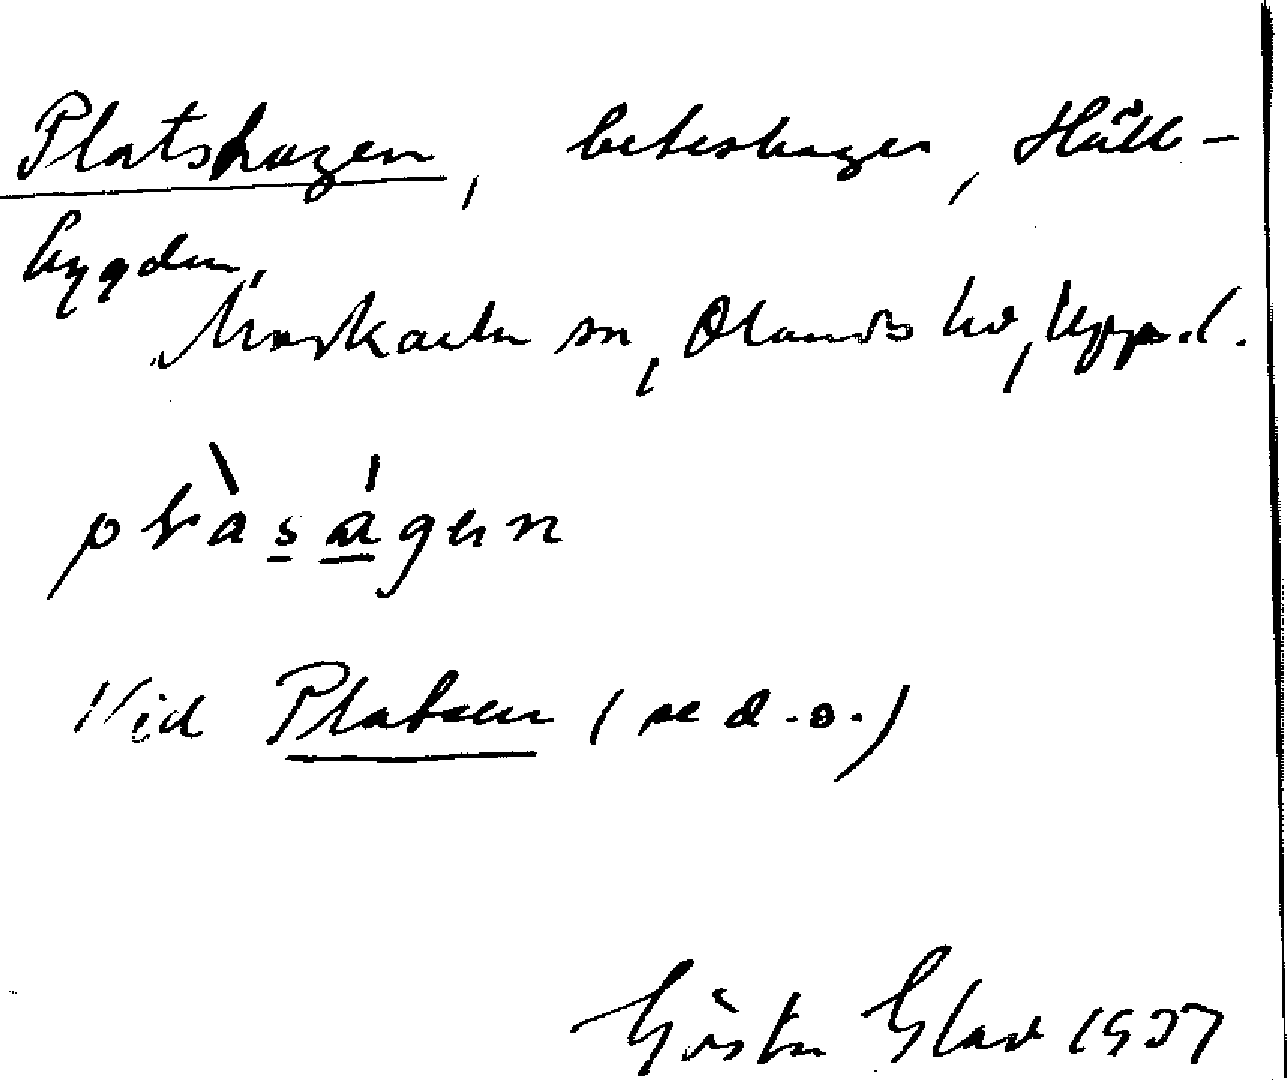 Platshagen, beteshagen, Håll-
bygden,
Morkarla sn, Olands hd, Uppl.
Vid Platsen (se d.o.)
Gösta 1937